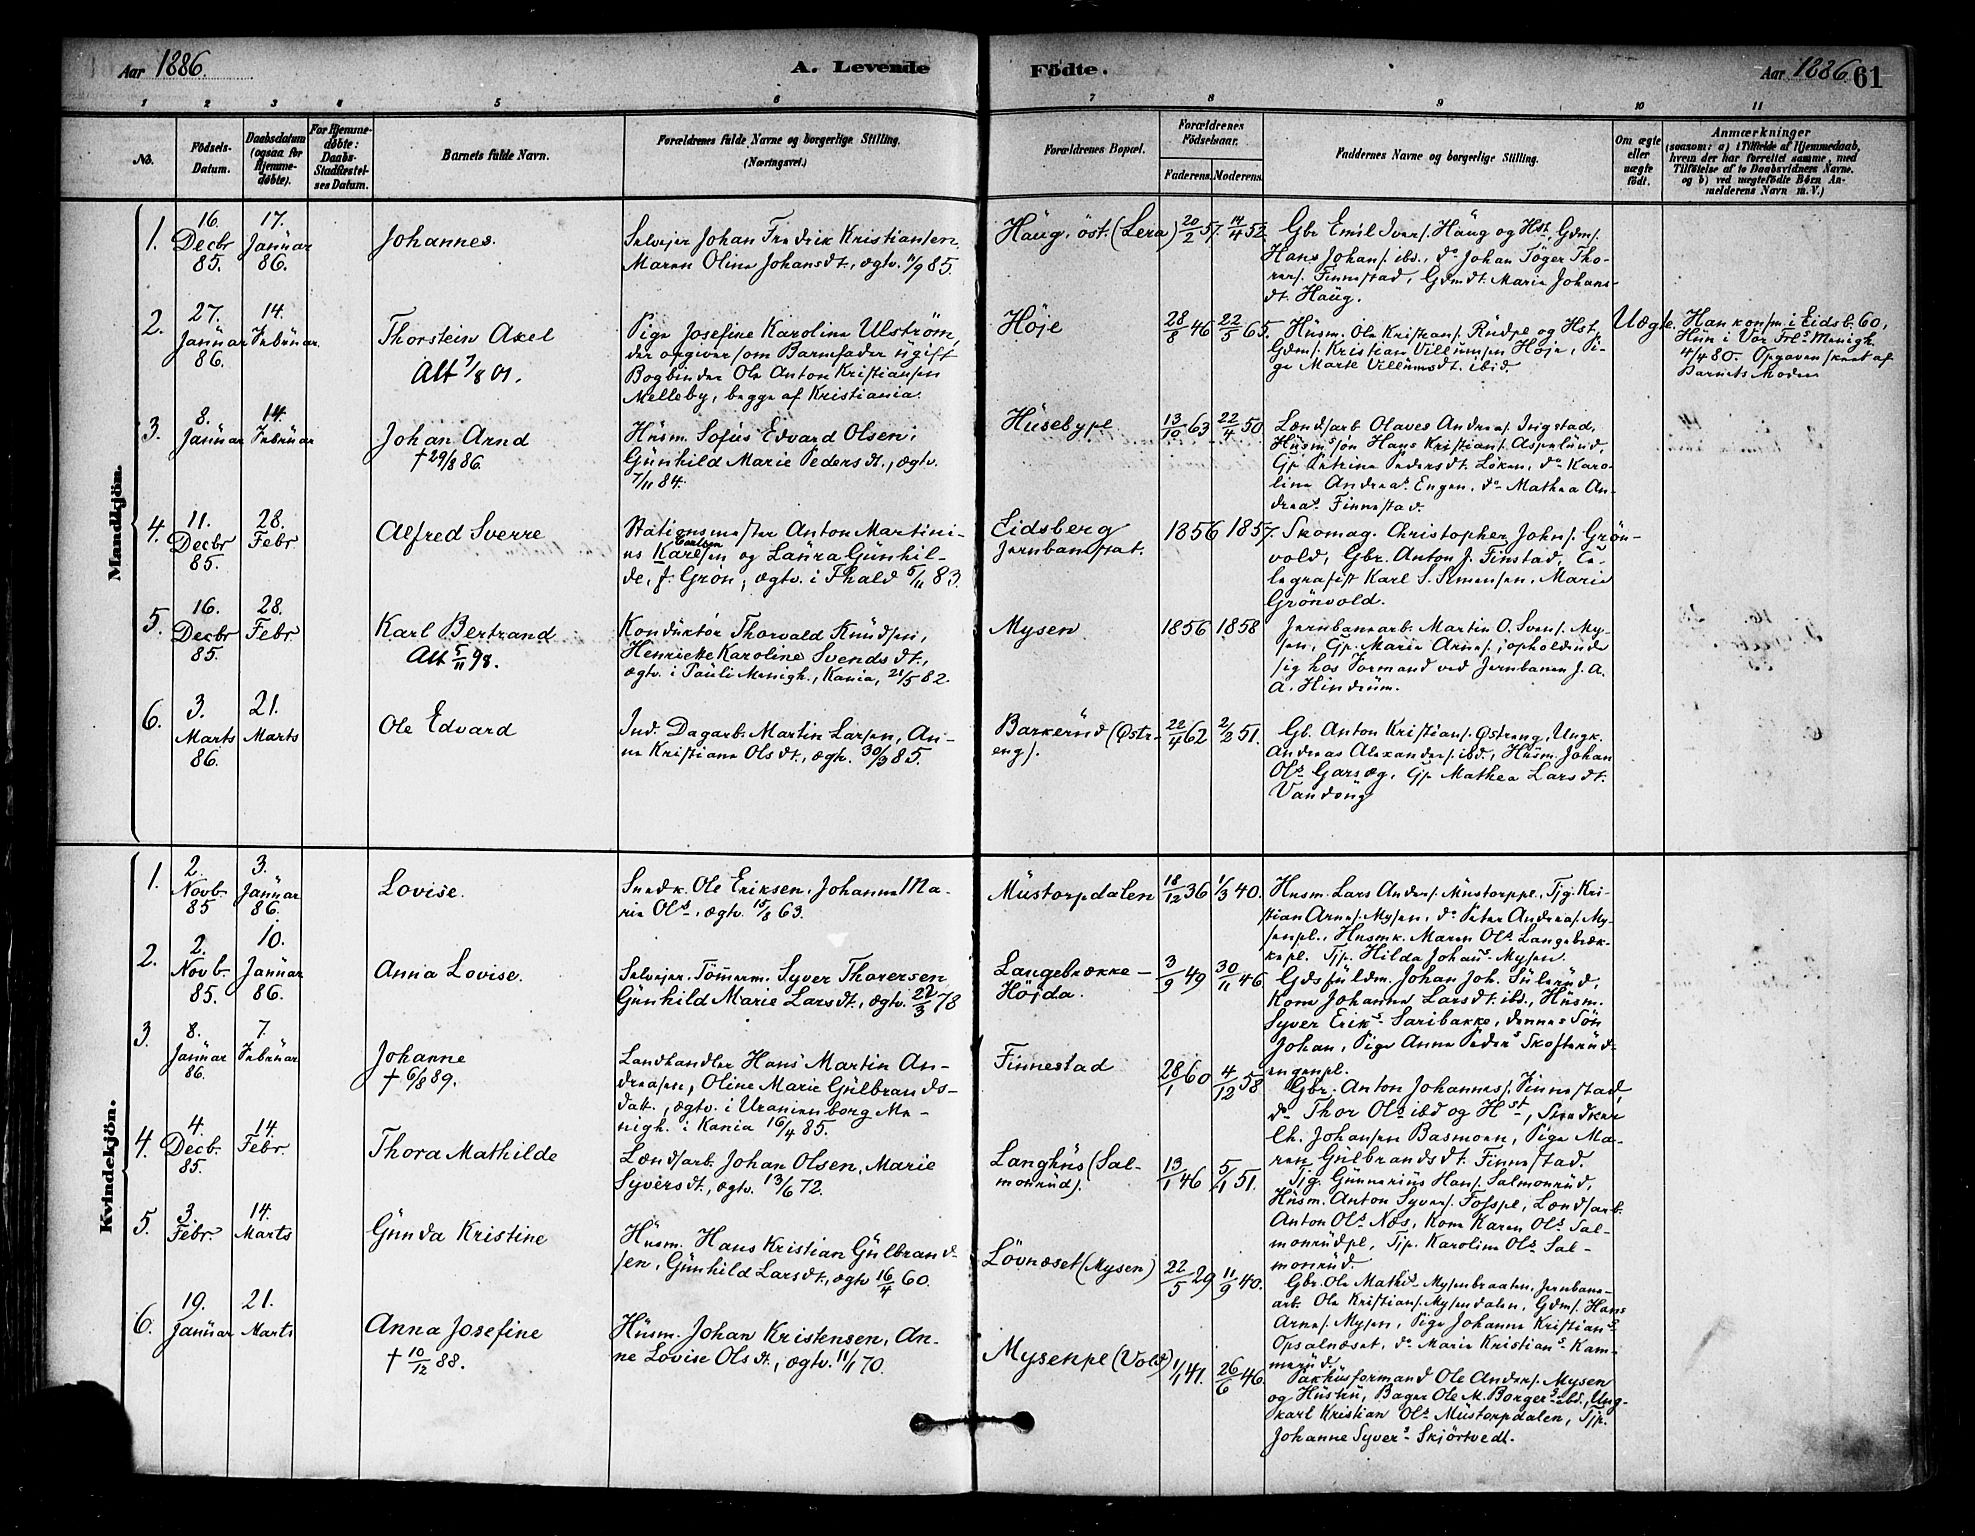 Aar 1886.
A. Levende
Födte.
Aar 1886.
61
1 2 3 4 5 6 7 8 9 10 11
No.
Födsels-
Datum.
Daabsdatum
(ogsaa for
Hjemme-
döbte).
For Hjemme-
döbte:
Daabs-
Stadfæstel-
ses Datum.
Barnets fulde Navn.
Forældrenes fulde Navne og borgerlige Stilling.
(Næringsvei.)
Forældrenes Bopæl.
Forældrenes
Födselsaar.
Faderens. Moderens.
Faddernes Navne og borgerlige Stilling.
Om ægte
eller
uægte
födt.
Anmærkninger
(saasom: a) i Tilfælde af Hjemmedaab,
hvem der har forrettet samme, med
Tilföielse af to Daabsvidners Navne.
og b) ved uægtefödte Börn An-
melderens Navn m. V.)
Mandkjön.
1.
16.
Decbr
85.
17.
Januar
86.
Johannes.
Selvejer Johan Fredrik Kristiansen,
Maren Oline Johansdt., ægtv. 11/9 85.
Haug, öst. (Lera)
20/2 57.
14/4 52.
Gbr Emil Svers. Haug og Hst, Gdms.
Hans Johans. ibd., do Johan Töger Tho-
rers. Finnestad, Gdmdt. Marie Johans-
dt. Haug.
2.
27.
Januar
86.
14.
Februar.
Thorstein Axel
Alt 7/8 01.
Pige Josefine Karoline Ulström,
der opgiver som Barnefader ugift
Bogbinder Ole Anton Kristiansen
Melleby, begge af Kristiania.
Höje
28/8 46
22/5 65.
Husm. Ole Kristians. Rudpe og Hst,
Gdms. Kristian Villumsen Höje, Pi-
ge Marte Villumsdt. ibid.
Uægte.
Han konfm i Eidsb. 60,
Hun i Vor Frls Menigh.
4/4 80. Opgaven skreet af
Barnets Moder
3.
8.
Januar
14.
Februar
Johan Arnd
† 29/8 86.
Husm. Sofus Edvard Olsen,
Gunhild Marie Pedersdt., ægtv.
7/11 84.
Husebype
13/10 63
22/4 50
Lændsarb Olaves Andreas. Ingstad,
Husmssön Hans Kristians. Aspelund,
Gp. Petrine Pedersdt. Löken, do Karo-
line Andreas. Engen, do Mathea An-
dreas. Finnestad.
4.
11.
Decbr
85.
28.
Febr
Alfred Sverre
Stationsmester Anton Martini-
us Karlsen og Laura Gunhil-
Carlsen
de, f. Grön, ægtv. i Fhald 5/11 83.
Eidsberg
Jernbanestat.
1856
1857.
Skomag. Christopher Johns. Grön-
vold, Gbr. Anton J. Finstad, Te-
legrafist Karl S. Simensen, Marie
Grönvold.
5.
16.
Decbr
85.
28.
Febr
Karl Bertrand
Alt 5/11 98.
Konduktör Thorvald Knudsen,
Henriette Karoline Svendsdt.,
ægtv. i Pauli Menigh., Kania, 21/5 82.
Mysen
1856
1858
Jernbanearb. Martin O. Svens. My-
sen, Gp. Marie Arnes., opholdende
sig hos Formand ved Jernbanen J. A.
A. Hindrum.
6.
3.
Marts
86.
21.
Marts
Ole Edvard
Ind. Dagarb. Martin Larsen, An-
ne Kristiane Olsdt., ægtv. 30/3 85.
Barkerud (Östr-
eng).
22/4 62
2/2 51.
Gb. Anton Kristians. Östreng, Ungk.
Andreas Alexanders. ibd., Husm. Johan
Ols. Garsæg, Gp Mathea Larsdt.
Vandeng
Kvindekjön.
1.
2.
Novb
85
3.
Januar
86.
Lovise.
Snedk. Ole Eriksen, Johanne Ma-
rie Ols., ægtv. 15/8 63.
Mustorpdalen
18/12 36
1/3 40.
Husm. Lars Anders. Mustorppl., Tjg. Kri-
stian Arnes. Mysen, do Peter Andreas. My-
senpl., Husmk. Maren Ols. Langebræk-
kepl. Tjp. Hilda Johans. Mysen.
2.
2.
Novb.
85.
10.
Januar
86.
Anna Lovise.
Selvejer, Tömmerm. Syver Thoresen
Gunhild Marie Larsdt., ægtv. 22/3 78
Langebrække-
Höjda.
3/9 49
30/11 46
Gdsfuldm. Johan Joh. Sulerud,
Kone Johanne Larsdt. ibd., Husm.
Syver Eriks. Saribakke, dennes Sön
Johan, Pige Anne Peders. Skofterud-
engenpl.
3.
8.
Januar
86.
7.
Februar
Johanne
† 6/8 89.
Landhandler Hans Martin An-
dreasen, Oline Marie Gulbrands-
datt., ægtv. i Uranienborg Me-
nigh. i Kania 16/4 85.
Finnestad
28/1 60
4/12 58
Gbr. Anton Johannes. Finnestad,
do Thor Ols. ibd og Hst, Snedker
Ch. Johansen Basmoen, Pige Ma-
ren Gulbrandsdt. Finnestad.
4.
4.
Decb.
85.
14
Febr.
Thora Mathilde
Lændsarb. Johan Olsen, Marie
Syversdt., ægtv. 13/6 72.
Langhus (Sal-
monrud).
13/1 46
5/11 51.
Tjg. Gunnerius Hans. Salmonrud,
Husm. Anton Syvers. Fosspl., Lændsarb.
Anton Ols. Næs, Kone Karen Ols. Sal-
monrudpl., Tjp. Karoline Ols. Sal-
monrud.
5.
3.
Febr.
14.
Marts
Gunda Kristine
Husm. Hans Kristian Gulbrand-
sen, Gunhild Larsdt., ægtv 16/4 60.
Lövnæset (Mysen)
22/5 29
11/9 40.
Gbr. Ole Mathis. Mysenbraaten, Jernbane-
arb. Ole Kristians. Mysendalen, Gdms. Hans
Arnes. Mysen, Pige Johanne Kristians.
Opsalnæset, do Marie Kristians. Kam-
merud.
6.
19.
Januar
21.
Marts
Anna Josefine
† 10/12 88.
Husm. Johan Kristensen, An-
ne Lovise Olsdt., ægtv. 11/1 70.
Mysenpe (Vold)
1/1 41.
26/6 46.
Pakhusformand Ole Anders. Mysen
og Hustru, Bager Ole M. Borgers. ibd., Ung-
karl Kristian Ols. Mustorpdalen, Tjp.
Johanne Syvers. Skjörtvedt.